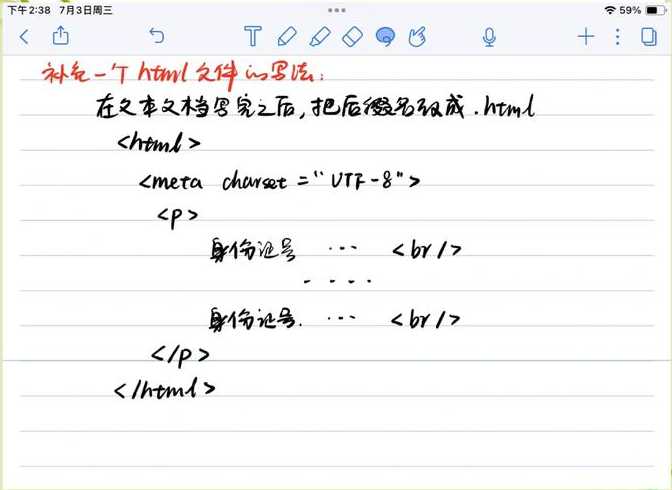 下午2:38 7月3日周三 59%
补充一个html文件的写法:
在文本文档写完之后,把后缀名改成.html
<html>
<meta charset="UTF-8">
<p>
身份证号 ... <br/>
....
身份证号. ... <br/>
</p>
</html>